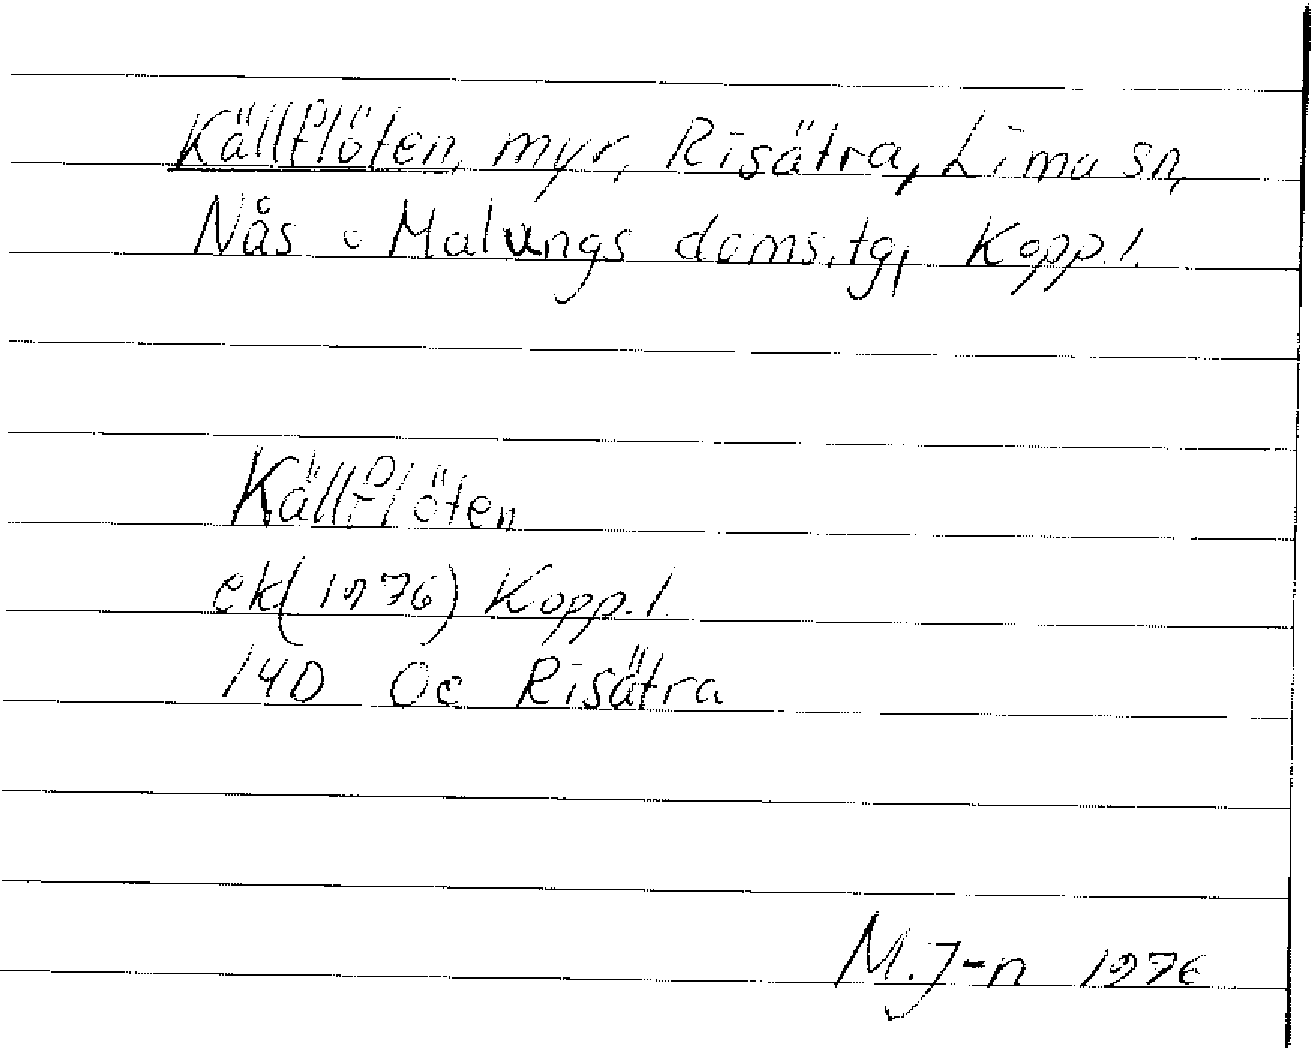 Källflöten, myr, Risätra, Lima sn,
Nås o Malungs doms.tg, Kopp.l.
Källflöten
ek(1976) Kopp.l.
14D 0c Risätra
M.J-n 1976